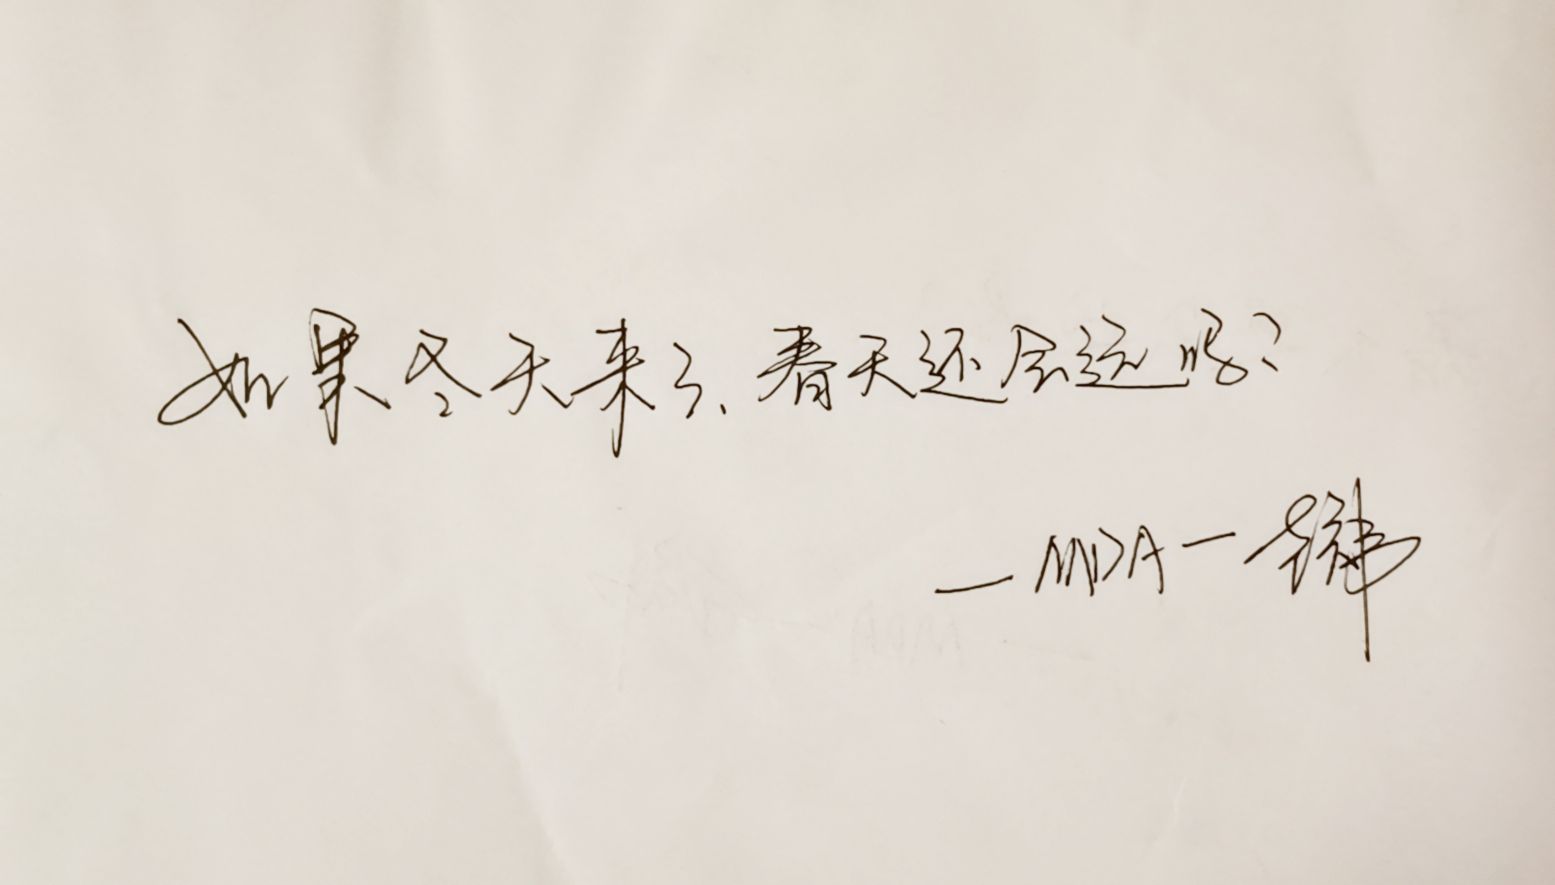 如果冬天来了、春天还会远吗？
— MDA —